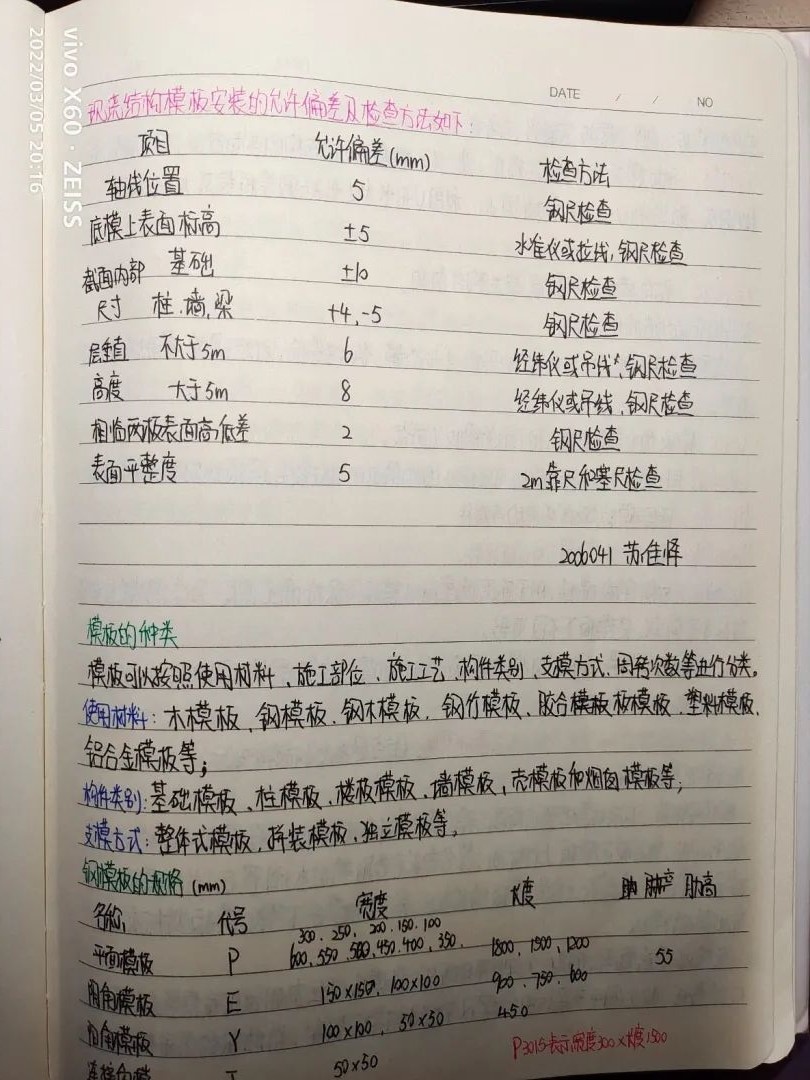 vivo X60 · ZEISS
2022/03/05 20:16
DATE / / NO
现浇结构模板安装的允许偏差及检查方法如下:
项目 允许偏差(mm) 检查方法
轴线位置 5 钢尺检查
底模上表面标高 ±5 水准仪或拉线,钢尺检查
截面内部 基础 ±10 钢尺检查
尺寸 柱.墙,梁 +4,-5 钢尺检查
层垂直 不大于5m 6 经纬仪或吊线,钢尺检查
高度 大于5m 8 经纬仪或吊线,钢尺检查
相临两板表面高低差 2 钢尺检查
表面平整度 5 2m靠尺和塞尺检查
2006041 苏佳怿
模板的种类
模板可以按照使用材料、施工部位、施工工艺、构件类别、支模方式、周转次数等进行分类。
使用材料:木模板、钢模板、钢木模板、钢竹模板、胶合模板板模板、塑料模板、
铝合金模板等;
构件类别:基础模板、柱模板、楼板模板、墙模板,壳模板和烟囱模板等;
支模方式:整体式模板,拼装模板、独立模板等。
钢模板的规格(mm)
名称, 代号 宽度 长度 肋高
300.250,200.150.100
平面模板 P 600,550.500,450.400,350. 1800,1500,1200 55
阴角模板 E 150×150,100×100 900.750.600
阳角模板 Y 100×100,50×50 450
P3015表示宽度300×长度1500
50×50